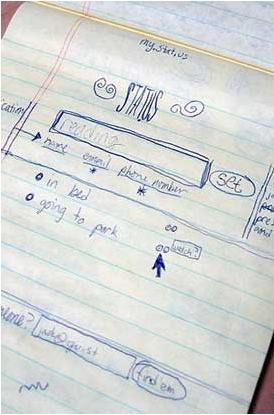 my.stat.us
STATUS
reading
name email phone number
set
in bed
going to park
watch?
find 'em